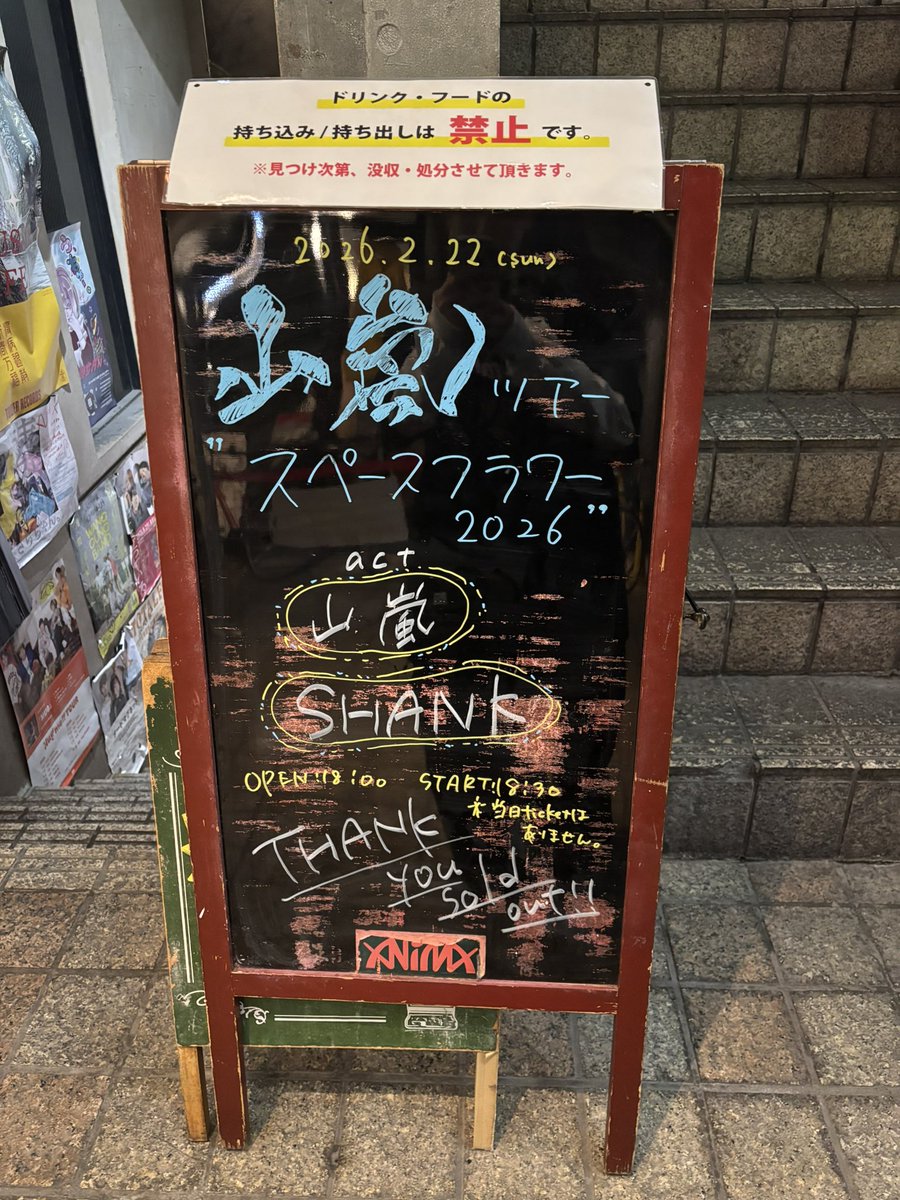 ドリンク・フードの
持ち込み/持ち出しは 禁止 です。
※見つけ次第、没収・処分させて頂きます。
2026.2.22 (sun)
山嵐 ツアー
"スペースフラワー
2026"
act
山嵐
SHANK
OPEN:18:00 START:18:30
※当日ticketは
ありません。
THANK
you
sold
out!!
ANIMA
TOWER RECORDS